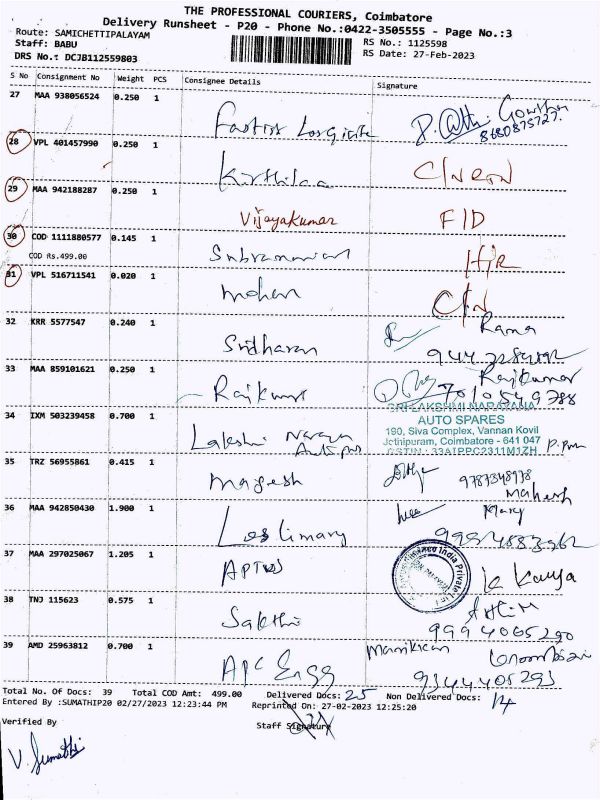 THE PROFESSIONAL COURIERS, Coimbatore
Delivery Runsheet - P20 - Phone No.:0422-3505555 - Page No.:3
Route: SAMICHETTIPALAYAM
Staff: BABU
RS No.: 1125598
DRS No.: DCJB112559803
RS Date: 27-Feb-2023
S No Consignment No Weight PCS Consignee Details Signature
27 MAA 938056524 0.250 1
8680875727.
28 VPL 401457990 0.250 1
29 MAA 942188287 0.250 1 Vijayakumar F/D
30 COD 1111880577 0.145 1 Subramanian
COD Rs.499.00
31 VPL 516711541 0.020 1 Mohan C/N
32 KRR 5577547 0.240 1 Sridharan Rama
33 MAA 859101621 0.250 1 Rajkumar Rajkumar
SRI LAKSHMI NARAYANA
AUTO SPARES
190, Siva Complex, Vannan Kovil
Jothipuram, Coimbatore - 641 047
GSTIN : 33ATPPC2311M1ZH
34 IXM 503239458 0.700 1 Lakshmi Narayana
35 TRZ 56955861 0.415 1 Magesh Mahesh
36 MAA 942850430 1.900 1 Mary
37 MAA 297025067 1.205 1 APTUS
India Private
38 TNJ 115623 0.575 1 Sakthi
9994065290
39 AMD 25963812 0.700 1 APC Engg Manikkan
9344405293
Total No. Of Docs: 39 Total COD Amt: 499.00 Delivered Docs: 25 Non Delivered Docs: 14
Entered By :SUMATHIP20 02/27/2023 12:23:44 PM Reprinted On: 27-02-2023 12:25:20
Verified By Staff Signature
V. Sumathi